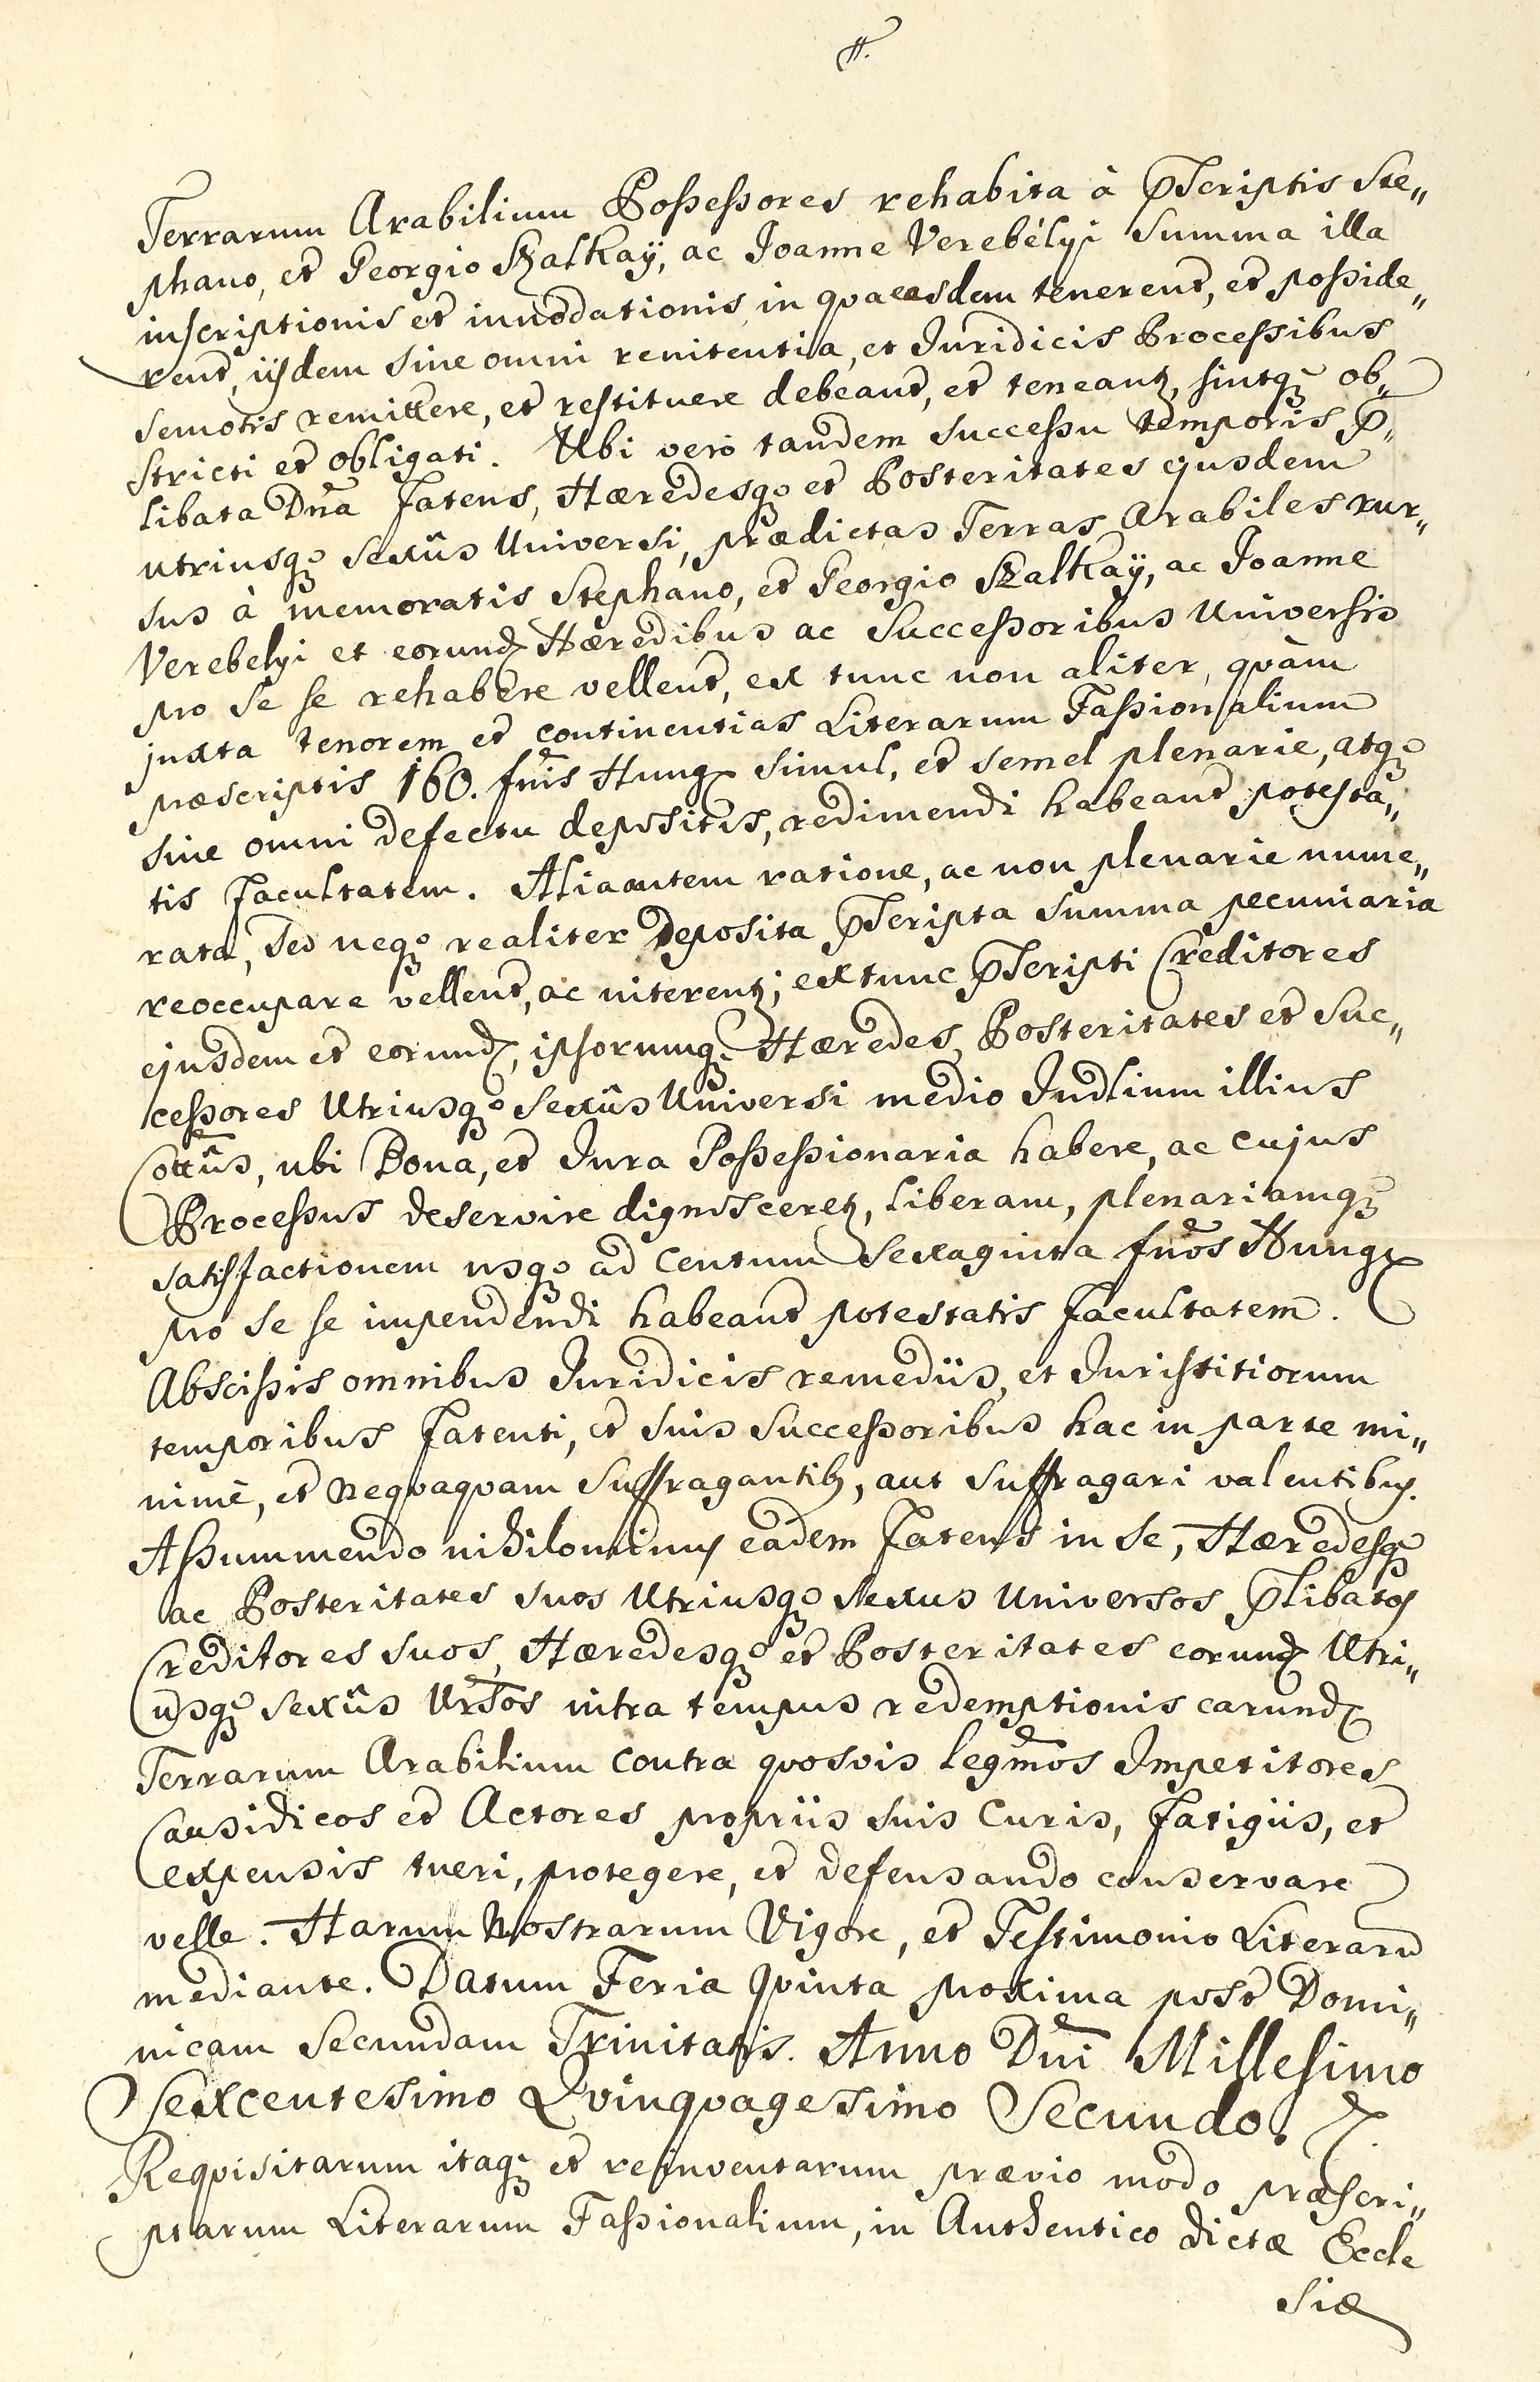 #.
Terrarum Arabilium Possessores rehabita à pscriptis Ste„
phano, et Georgio Szalkaÿ, ac Joanne Verebélyi Summa illa
inscriptionis et innodationis in qva easdem tenerent, et posside„
rent, iisdem sine omni renitentia, et Juridicis Processibus
semotis remittere, et restituere debeant, et teneantz, sintqz ob„
stricti et obligati. Ubi verò tandem successu temporis p„
libata Dna Fatens, Hæredesqz et Posteritates ejusdem
utriusqz sexûs Universi, prædictas Terras Arabiles rur„
sus à memoratis Stephano, et Georgio Szalkaÿ, ac Joanne
Verebelyi et eorund Hæredibus ac Successoribus Universis
pro se se rehabere vellent, ex tunc non aliter, quàm
juxta tenorem et continentias Literarum Fassionalium
præscriptis 160. fnis Hung simul, et semel plenarie, atqz
sine omni defectu depositis, redimendi habeant potesta„
tis Facultatem. Alia autem ratione, ac non plenarie nume„
rata, sed neqz realiter deposita pscripta summa pecuniaria
reoccupare vellent, ac niterentz; extunc pscripti Creditores
ejusdem et eorund, ipsorumqz Hæredes, Posteritates et Suc„
cessores Utriusqz Sexûs Universi medio Judlium illius
Cottûs, ubi Bona, et Jura Possessionaria habere, ac cujus
Processus deservire dignosceretz, liberam, plenariamqz
satisfactionem usqz ad Centum Sexaginta fnos Hung
pro se se impendendi habeant potestatis Facultatem.
Abscissis omnibus Juridicis remediis, et Juristitiorum
temporibus Fatenti, et suis successoribus hac in parte mi„
nimè, et neqvaqvam suffragantibz, aut suffragari valentibus.
Assummendo nihilominus eadem Fatens in se, Hæredesqz
ac Posteritates suos Utriusqz sexus Universos plibatos
Creditores suos, Hæredesqz et Posteritates eorund Utri„
usqz sexûs Ursos intra tempus redemptionis earund
Terrarum Arabilium contra qvosvis legmos Impetitores
Causidicos et Actores propriis suis Curis, Fatigiis, et
expensis tueri, protegere, et defensando conservare
velle. Harum Nostrarum Vigore, et Testimonio Literarū
mediante. Datum Feria Qvinta proxima post Domi„
nicam Secundam Trinitatis. Anno Dni Millesimo
Sexcentesimo Qvinqvagesimo Secundo.
Reqvisitarum itaqz et reinventarum prævio modo præscri„
ptarum Literarum Fassionalium, in Authentico dictæ Eccle
siæ